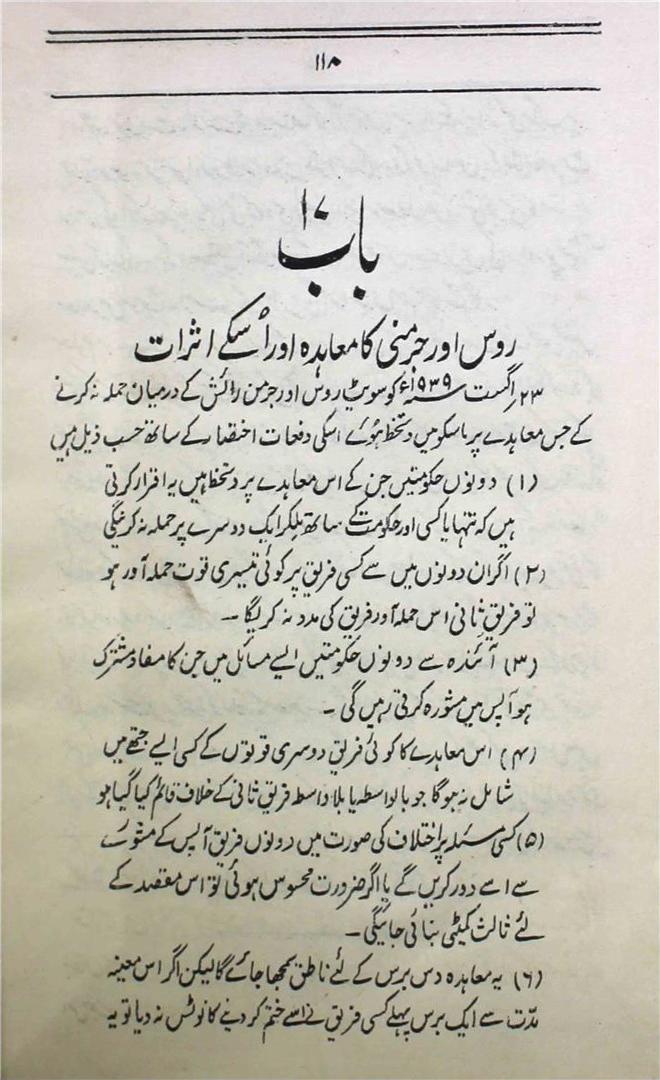 ۱۱۸
باب ۱۷
روس اور جرمنی کا معاہدہ اور اُسکے اثرات
۲۳؍اگست ۱۹۳۹ء کو سویٹ روس اور جرمن رائش کے درمیان حملہ نہ کرنے
کے جس معاہدے پر ماسکو میں دستخط ہوئے اسکی دفعات اختصار کے ساتھ حسب ذیل ہیں
(۱) دونوں حکومتیں جن کے اس معاہدے پر دستخط ہیں یہ اقرار کرتی
ہیں کہ تنہا یا کسی اور حکومت کے ساتھ ملکر ایک دوسرے پر حملہ نہ کرینگی
(۲) اگر ان دونوں میں سے کسی فریق پر کوئی تیسری قوت حملہ آور ہو
تو فریق ثانی اس حملہ آور فریق کی مدد نہ کریگا ۔
(۳) آئندہ سے دونوں حکومتیں ایسے مسائل میں جن کا مفاد مشترک
ہو آپس میں مشورہ کرتی رہیں گی ۔
(۴) اس معاہدے کا کوئی فریق دوسری قوتوں کے کسی ایسے جتھے میں
شامل نہ ہوگا جو بالواسطہ یا بلاواسطہ فریق ثانی کے خلاف قائم کیا گیا ہو
(۵) کسی مسئلہ پر اختلاف کی صورت میں دونوں فریق آپس کے مشورے
سے اسے دور کریں گے یا اگر ضرورت محسوس ہوئی تو اس مقصد کے
لئے ثالث کمیٹی بنائی جائیگی ۔
(۶) یہ معاہدہ دس برس کے لئے ناطق سمجھا جائے گا لیکن اگر اس معینہ
مدّت سے ایک برس پہلے کسی فریق نے اسے ختم کر دینے کا نوٹس نہ دیا تو یہ